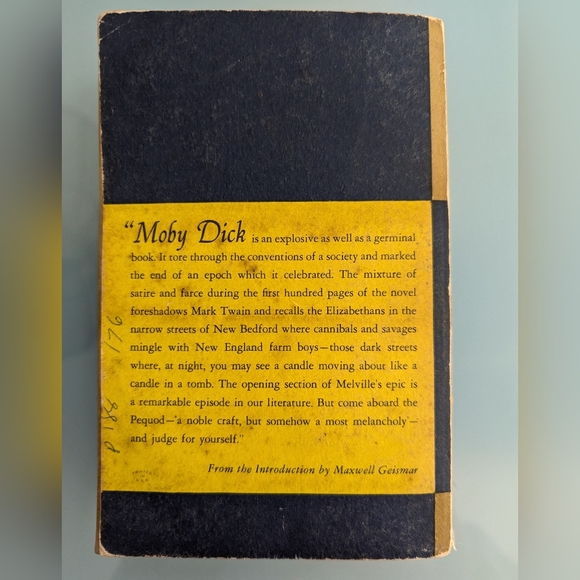 "Moby Dick is an explosive as well as a germinal
book. It tore through the conventions of a society and marked
the end of an epoch which it celebrated. The mixture of
satire and farce during the first hundred pages of the novel
foreshadows Mark Twain and recalls the Elizabethans in the
narrow streets of New Bedford where cannibals and savages
mingle with New England farm boys—those dark streets
where, at night, you may see a candle moving about like a
candle in a tomb. The opening section of Melville's epic is
a remarkable episode in our literature. But come aboard the
Pequod—'a noble craft, but somehow a most melancholy'—
and judge for yourself."
From the Introduction by Maxwell Geismar
P 188 176